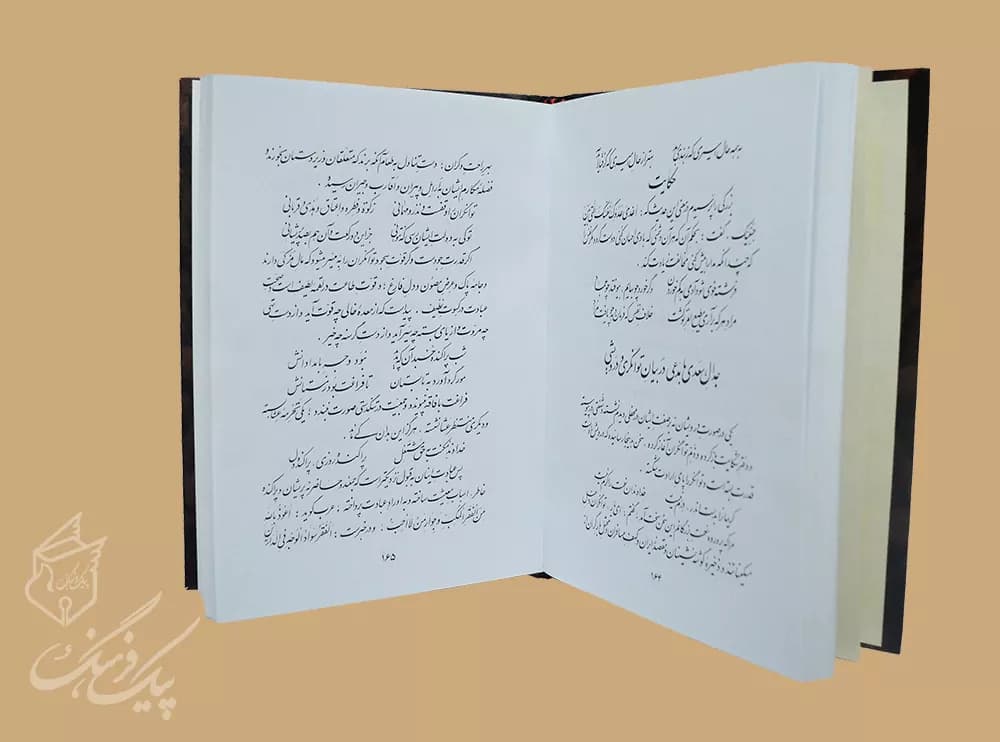 به همه حال اسیری که ز بندی برهد بهتر از حال امیری که گرفتار آید
حکایت
بزرگی را پرسیدم در معنی این حدیث که : اعدی عدوک نفسک التی بین
جنبیک . گفت : بحکم آن که هر آن دشمنی که با وی احسان کنی دوست گردد مگر نفس
که چندانکه مدارا بیش کنی مخالفت زیادت کند .
فرشته خوی شود آدمی به کم خوردن وگر خورد چو بهایم بیوفتد چو جماد
مراد هر که برآری مطیع امر تو گشت خلاف نفس که فرمان دهد چو یافت مراد
جدال سعدی با مدعی در بیان توانگری و درویشی
یکی در صورت درویشان نه بر صفت ایشان در محفلی دیدم نشسته و شنعتی در پیوسته
و دفتر شکایت باز کرده و ذم توانگران آغاز کرده ، سخن بدینجا رسانیده که درویش را دست
قدرت بسته است و توانگر را پای ارادت شکسته .
کریمان را به دست اندر درم نیست خداوندان نعمت را کرم نیست
مرا که پرورده نعمت بزرگانم این سخن سخت آمد . گفتم : ای یار ، توانگران دخل
مسکینانند و ذخیره گوشه نشینان و مقصد زایران و کهف مسافران و محتمل بار گران از
۱۶۴
بهر راحت دگران : دست تناول به طعام آنگه برند که متعلقان و زیردستان بخورند و
فضله مکارم ایشان به ارامل و پیران و اقارب و جیران رسیده .
توانگران را وقفست و نذر و مهمانی زکوة و فطره و اعتاق و هدی و قربانی
تو کی به دولت ایشان رسی که نتوانی جز این دو رکعت و آن هم بصد پریشانی
اگر قدرت جودست و گر قوت سجود توانگران را به میسر میشود که مال مزکی دارند
و جامه پاک و عرض مصون و دل فارغ : و قوت طاعت در لقمه لطیف است و صحت
عبادت در کسوت نظیف . پیداست که از معده خالی چه قوت آید و از دست تهی
چه مروت و از پای بسته چه سیر آید و از دست گرسنه چه خیر .
شب پراکنده خسبد آن که پدید نبود وجه بامدادانش
مور گرد آورد به تابستان تا فراغت بود زمستانش
فراغت با فاقه نپیوندد و جمعیت در تنگدستی صورت نبندد : یکی تحرمه عشا بسته
و دیگری منتظر عشا نشسته ، هرگز این بدان کی ماند .
خداوند مکنت به حق مشتغل پراکنده روزی ، پراکنده دل
پس عبادت اینان به قبول نزدیکترست که جمعند و حاضر نه پریشان و پراکنده
خاطر، اسباب معیشت ساخته و به اوراد عبادت پرداخته ، عرب گوید : اعوذ بالله
من الفقر المکب و جوار من لا احب : و در خبرست : الفقر سواد الوجه فی الدارین
۱۶۵
پیک فرهنگ